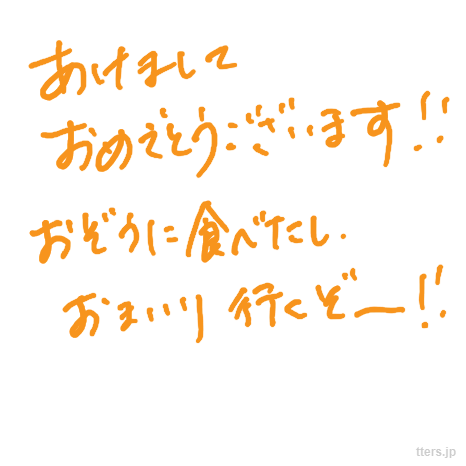 あけまして
おめでとうございます!!
おぞうに食べたし.
おまいり行くぞー!!
tters.jp